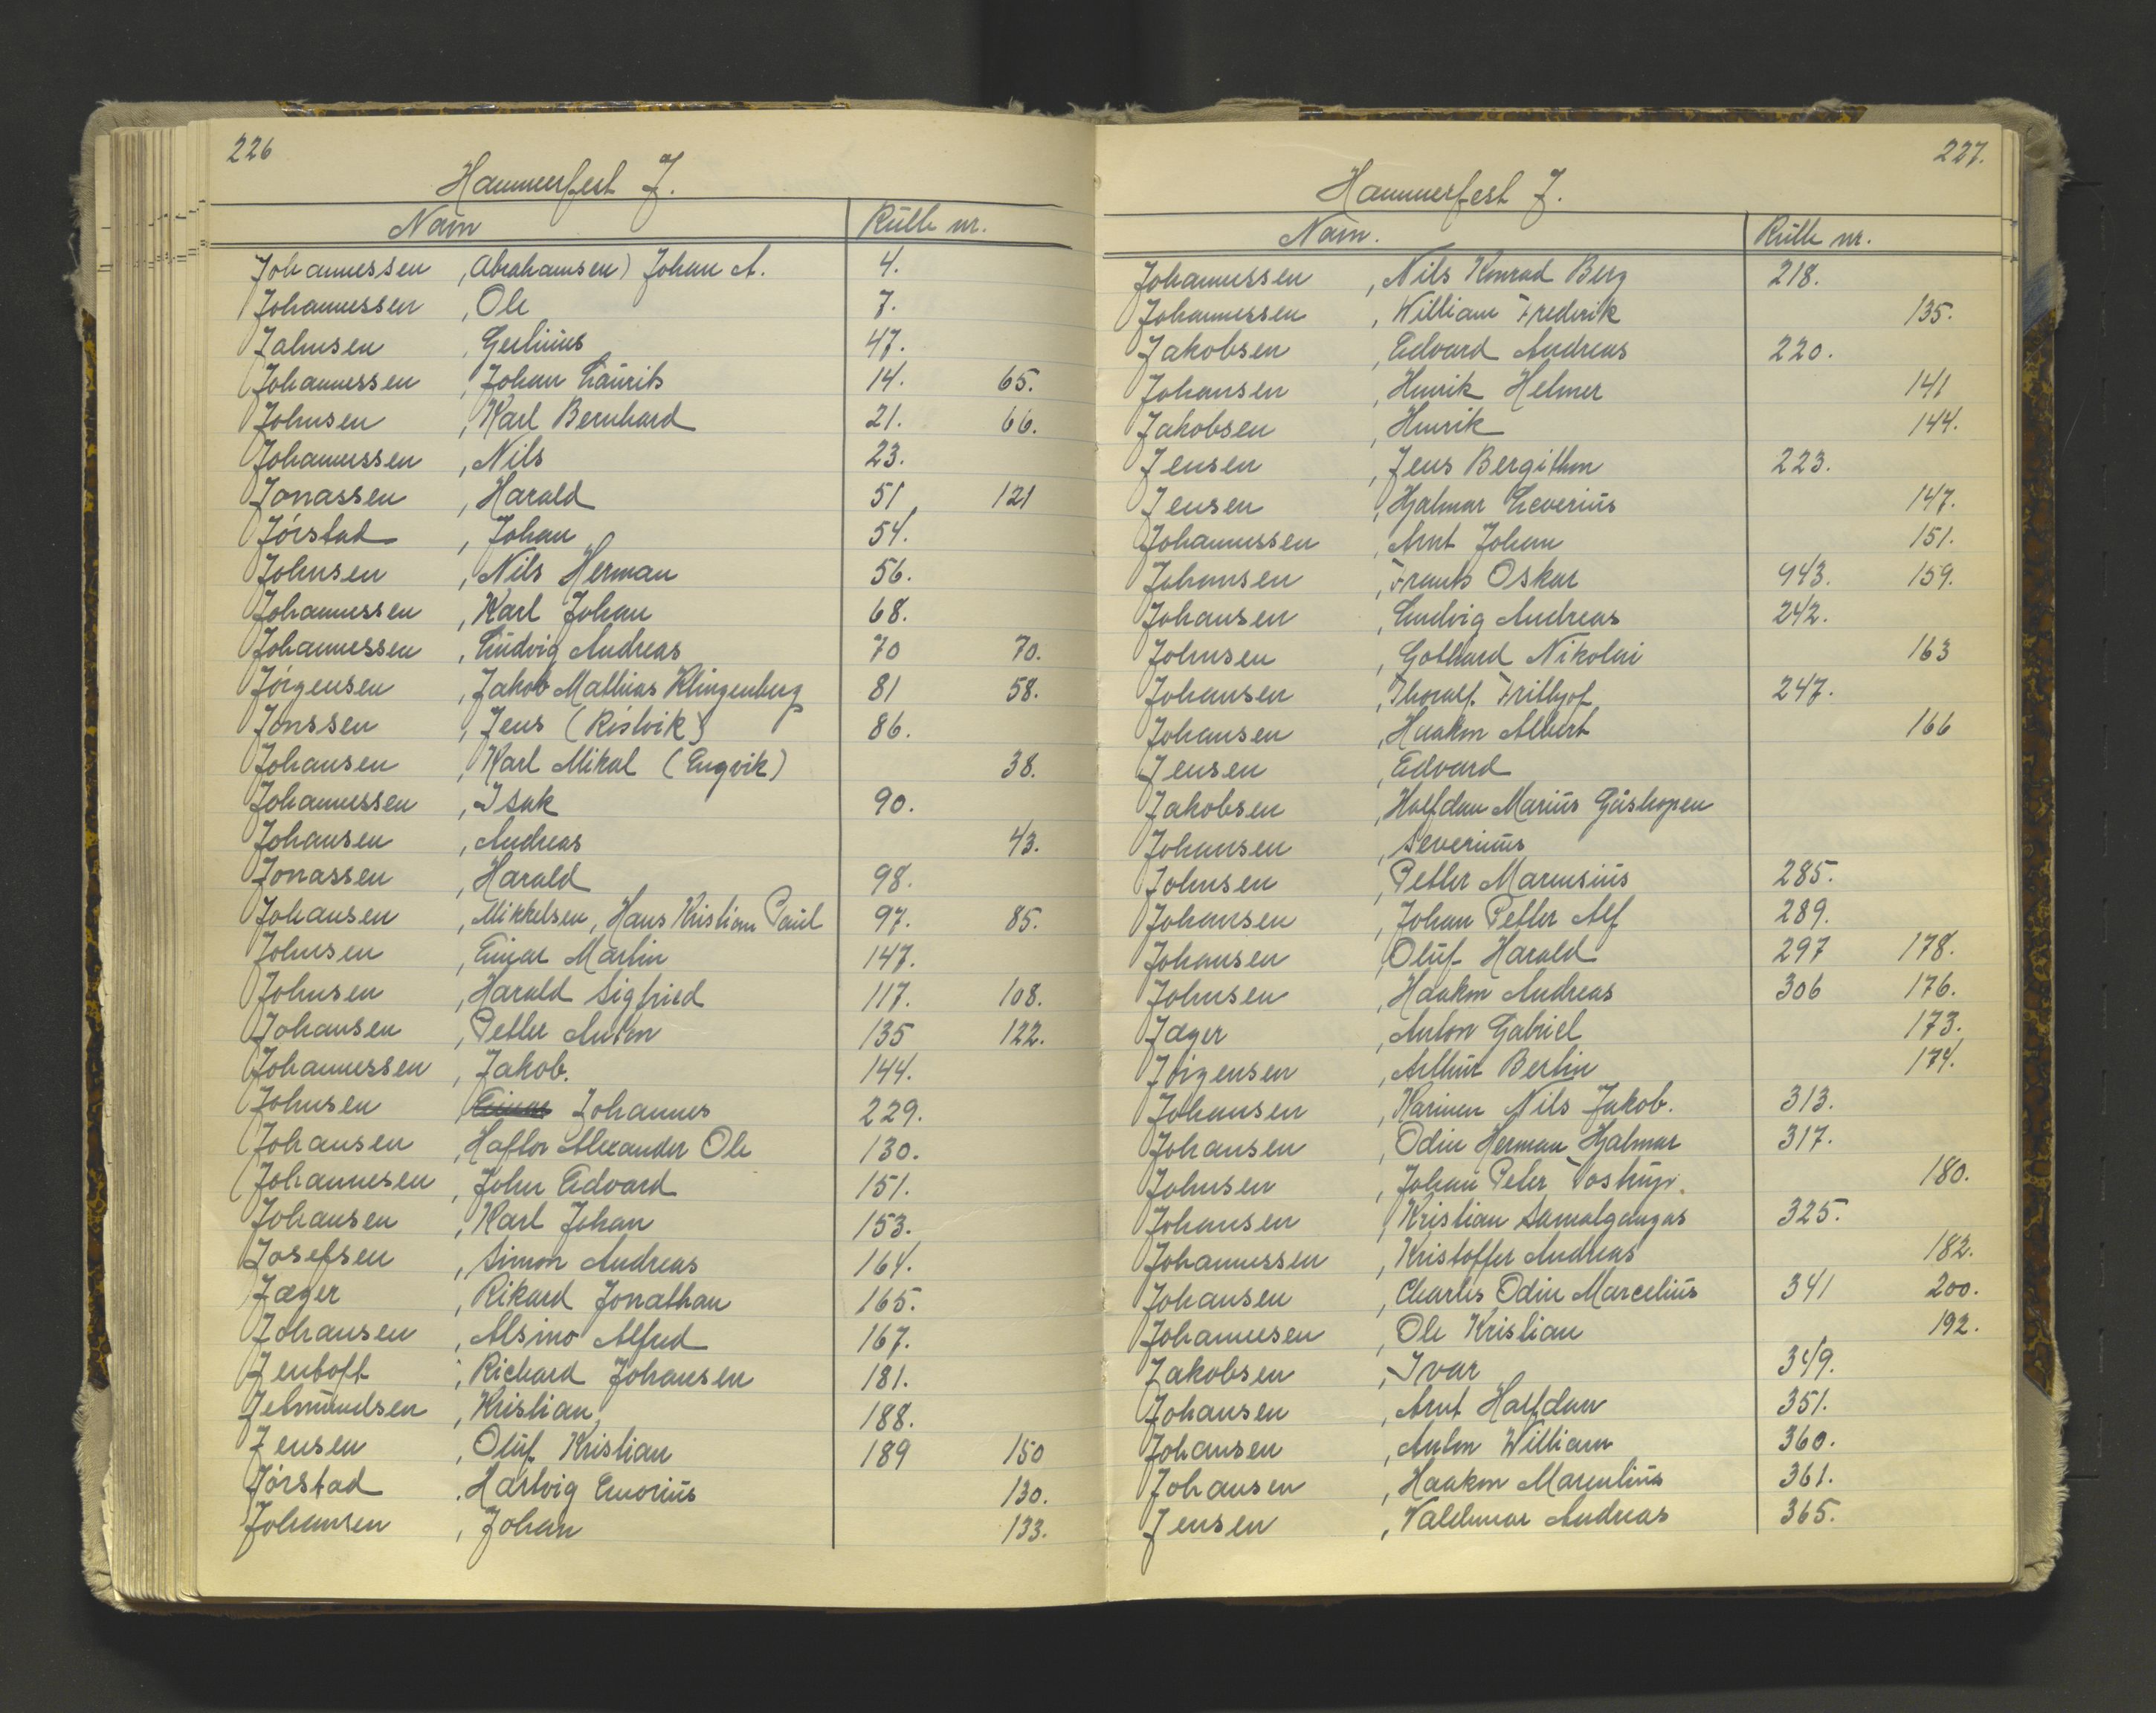 226
Hammerfest J.
Navn Rulle nr.
Johannessen , Abrahamsen) Johan A. 4.
Johannessen , Ole 7.
Johnsen , Gerlinius 47.
Johannessen , Johan Laurits 14. 65.
Johnsen , Karl Bernhard 21. 66.
Johannessen , Nils 23.
Jonassen , Harald 51 121
Jørstad , Johan 54.
Johnsen , Nils Herman 56.
Johannessen , Karl Johan 68.
Johannessen , Ludvig Andreas 70 70.
Jørgensen , Jakob Mathias Klingenberg 81 58.
Jonssen , Jens (Risvik) 86.
Johansen , Karl Mikal (Engvik) 38.
Johannessen , Isak 90.
Johansen , Andreas 43.
Jonassen , Harald 98.
Johansen , Mikkelsen, Hans Kristian Paul 97. 85.
Johnsen , Einar Martin 147.
Johnsen , Harald Sigfried 117. 108.
Johansen , Petter Anton 135 122.
Johannessen , Jakob. 144.
Johnsen Einar Johannes 229.
Johansen , Haftor Alexander Ole 130.
Johannesen , John Edvard 151.
Johansen , Karl Johan 153.
Josefsen , Simon Andreas 164.
Jæger , Rikard Jonathan 165.
Johansen , Alsino Alfred 167.
Jentoft , Richard Johansen 181.
Jetmundsen , Kristian 188.
Jensen , Oluf Kristian 189 150
Jørstad , Hartvig Enorius 130.
Johansen , Johan 133.
227.
Hammerfest J.
Navn. Rulle nr.
Johannessen , Nils Konrad Berg 218.
Johannessen , William Frederik 135.
Jakobsen , Edvard Andreas 220.
Johansen , Henrik Helmer 141
Jakobsen , Henrik 144.
Jensen , Jens Bergithon 223.
Jensen , Hjalmar Severius 147.
Johannessen , Arnt Johan 151.
Johansen , Frants Oskar 943. 159.
Johansen , Ludvig Andreas 242.
Johnsen , Gothard Nikolai 163
Johansen , Thoralf Frithjof 247.
Johansen , Haakon Albert 166
Jensen , Edvard
Jakobsen , Halfdan Marius Gåshopen
Johansen , Severinus
Johnsen , Petter Marensius 285.
Johansen , Johan Petter Alf 289.
Johansen , Oluf Harald 297 178.
Johnsen , Haakon Andreas 306 176.
Jæger , Anton Gabriel 173.
Jørgensen , Arthur Bertin 174.
Johansen , Karinen Nils Jakob. 313.
Johansen , Odin Herman Hjalmar 317.
Johnsen , Johan Peter 180.
Johansen , Kristian 325.
Johannessen , Kristoffer Andreas 182.
Johansen , Charles Odin Marcelius 341 200.
Johannesen , Ole Kristian 192.
Jakobsen , Ivar 349.
Johansen , Arnt Halfdan 351.
Johansen , Anton William 360.
Johansen , Haakon Marentius 361.
Jensen , Valdemar Andreas 365.